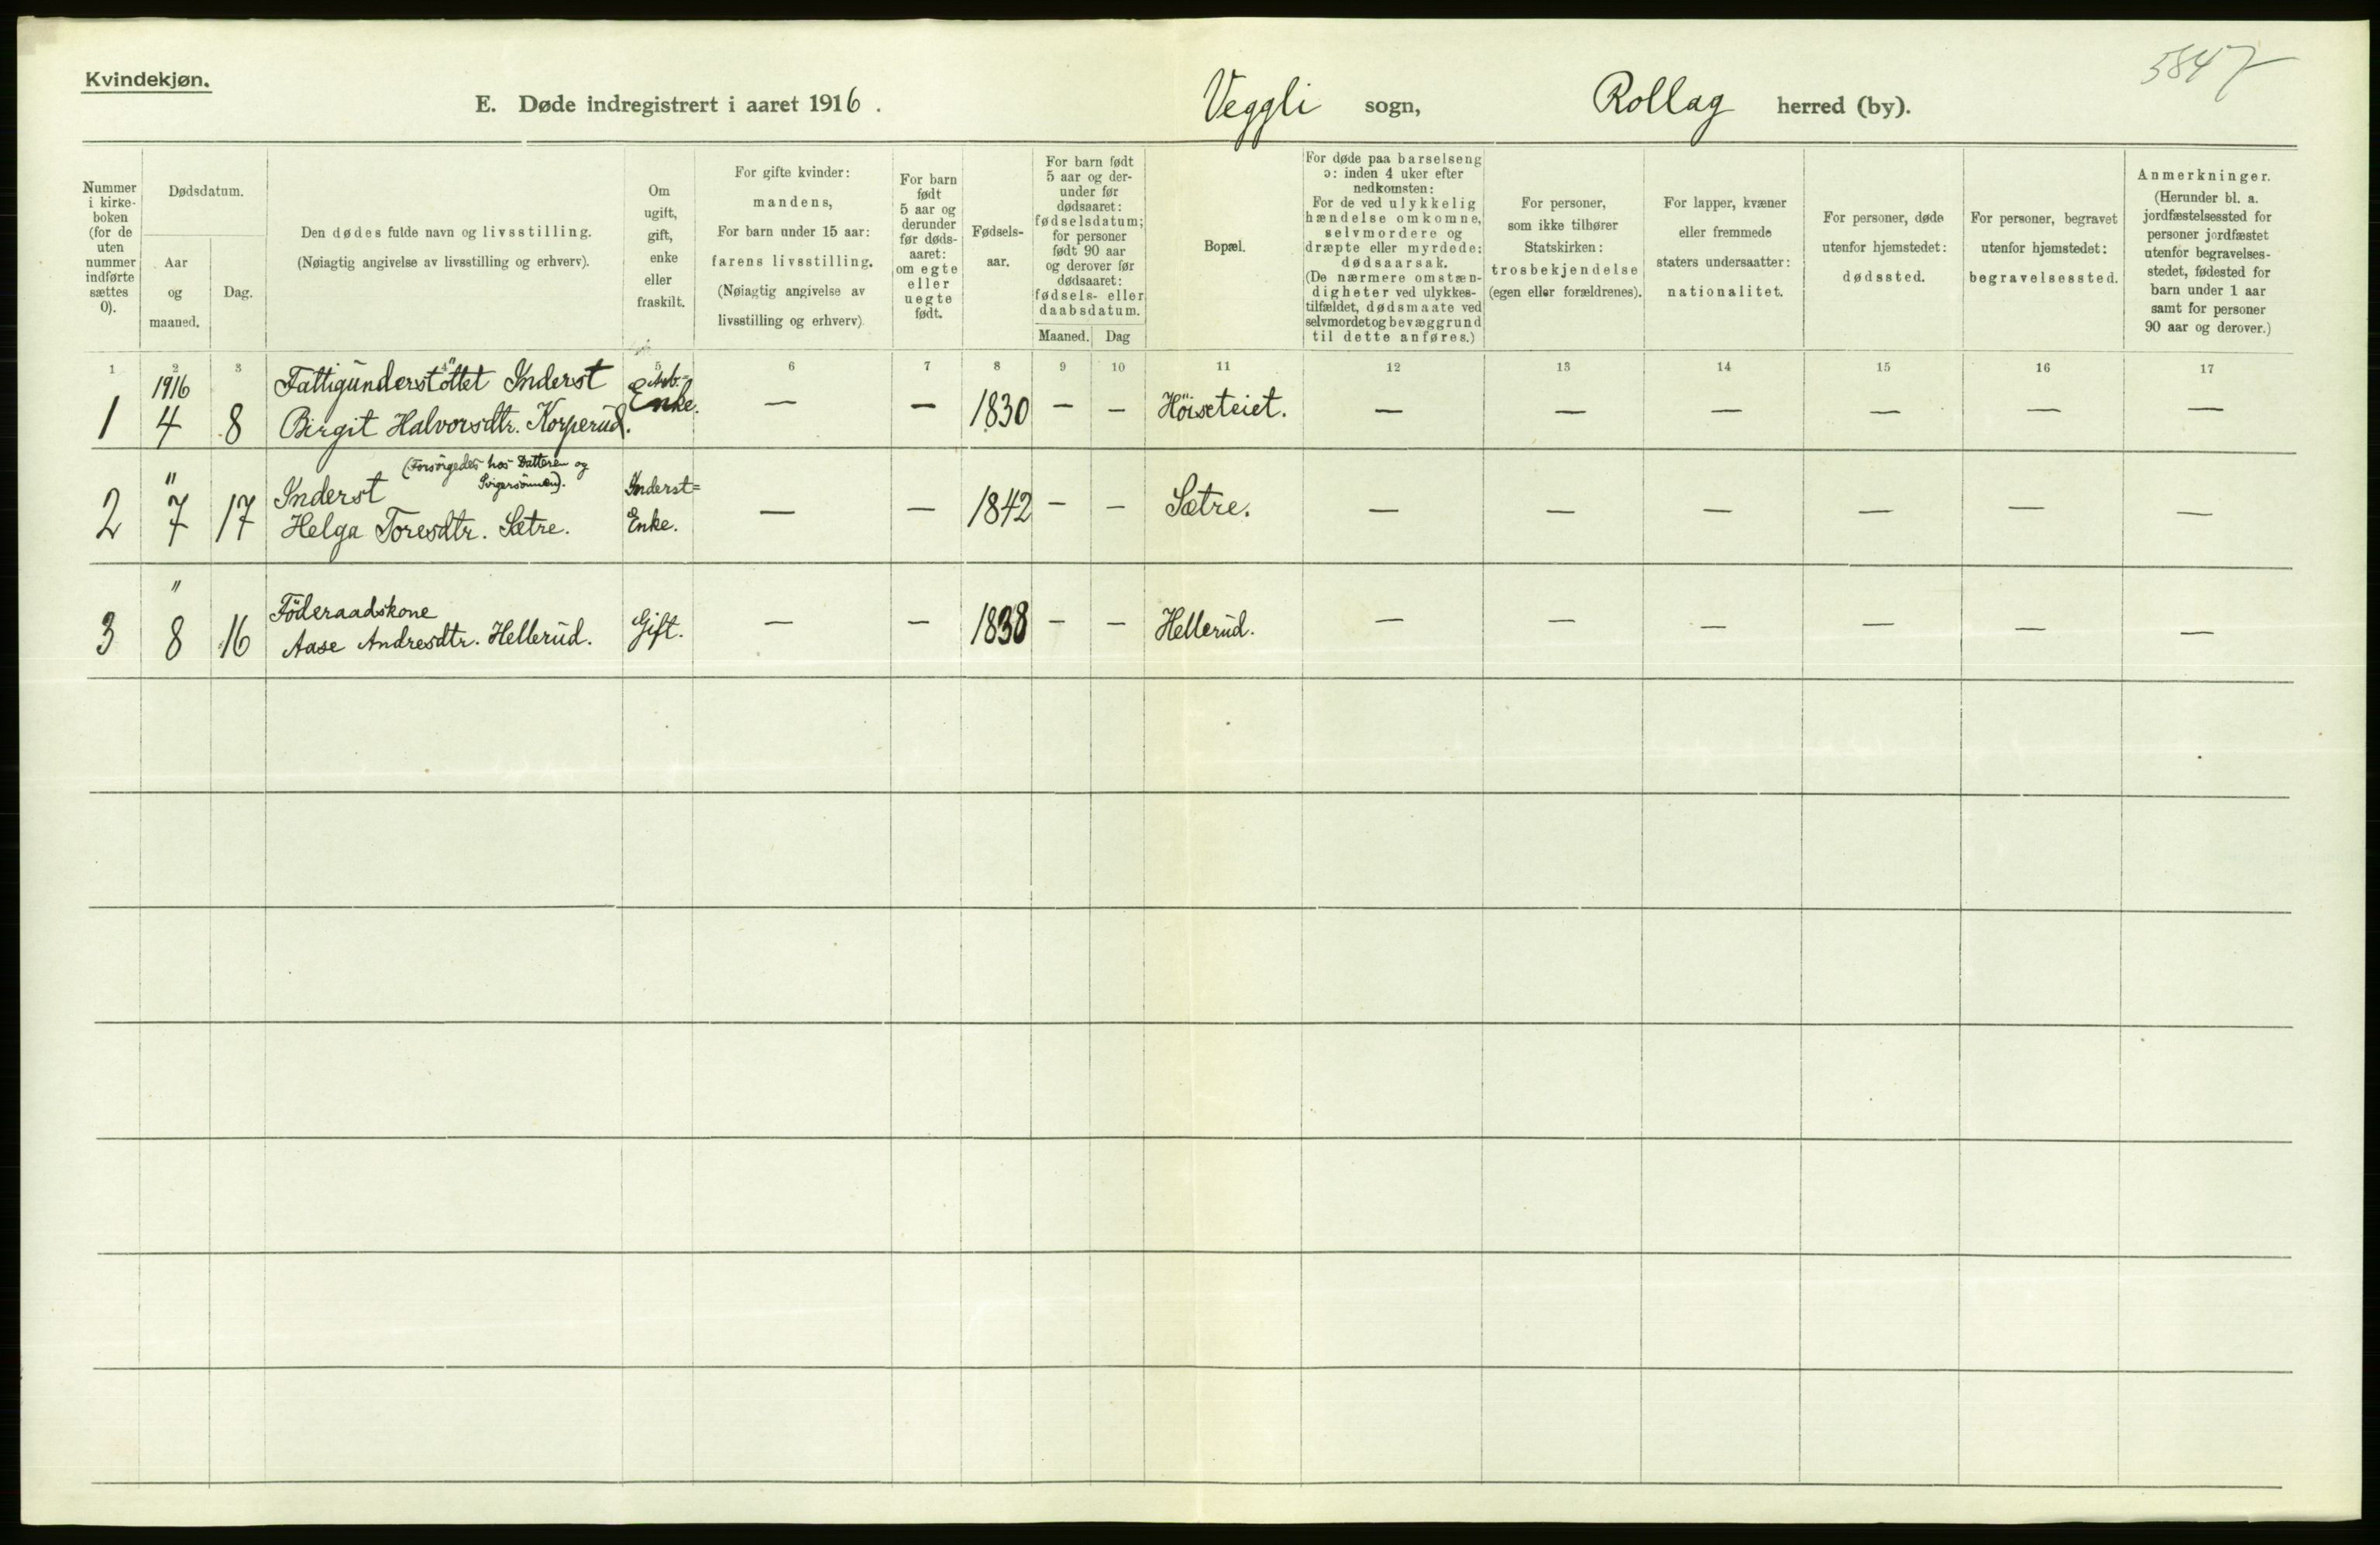 Kvindekjøn.
5847
E. Døde indregistrert i aaret 1916. Veggli sogn, Rollag herred (by).
Nummer
i kirke-
boken
(for de
uten
nummer
indførte
sættes
0).
Dødsdatum.
Aar
og
maaned.
Dag.
Den dødes fulde navn og livsstilling.
(Nøiagtig angivelse av livsstilling og erhverv).
Om
ugift,
gift,
enke
eller
fraskilt.
For gifte kvinder:
mandens,
For barn under 15 aar:
farens livsstilling.
(Nøiagtig angivelse av
livsstilling og erhverv)
For barn
født
5 aar og
derunder
før døds-
aaret:
om egte
eller
uegte
født.
Fødsels-
aar.
For barn født
5 aar og der-
under før
dødsaaret:
fødselsdatum;
for personer
født 90 aar
og derover før
dødsaaret:
fødsels- eller
daabsdatum.
Maaned. Dag
Bopæl.
For døde paa barselseng
ɔ: inden 4 uker efter
nedkomsten:
For de ved ulykkelig
hændelse omkomne,
selvmordere og
dræpte eller myrdede:
dødsaarsak.
(De nærmere omstæn-
digheter ved ulykkes-
tilfældet, dødsmaate ved
selvmordet og bevæggrund
til dette anføres.)
For personer,
som ikke tilhører
Statskirken:
trosbekjendelse
(egen eller forældrenes).
For lapper, kvæner
eller fremmede
staters undersaatter:
nationalitet.
For personer, døde
utenfor hjemstedet:
dødssted.
For personer, begravet
utenfor hjemstedet:
begravelsessted.
Anmerkninger.
(Herunder bl. a.
jordfæstelsessted for
personer jordfæstet
utenfor begravelses-
stedet, fødested for
barn under 1 aar
samt for personer
90 aar og derover.)
1 2 3 4 5 6 7 8 9 10 11 12 13 14 15 16 17
1916 Fattigunderstöttet Inderst
1 4 8 Birgit Halvorsdtr. Korperud. Enke. — — 1830 — — Höiseteiet. — — — — — —
" (Forsörgedes hos Datteren og
Svigersönnen).
Inderst Inderst=
2 7 17 Helga Toresdtr. Sætre. Enke. — — 1842 — — Sætre. — — — — — —
" Föderaadskone
3 8 16 Aase Andresdtr. Hellerud. Gift. — — 1838 — — Hellerud. — — — — — —